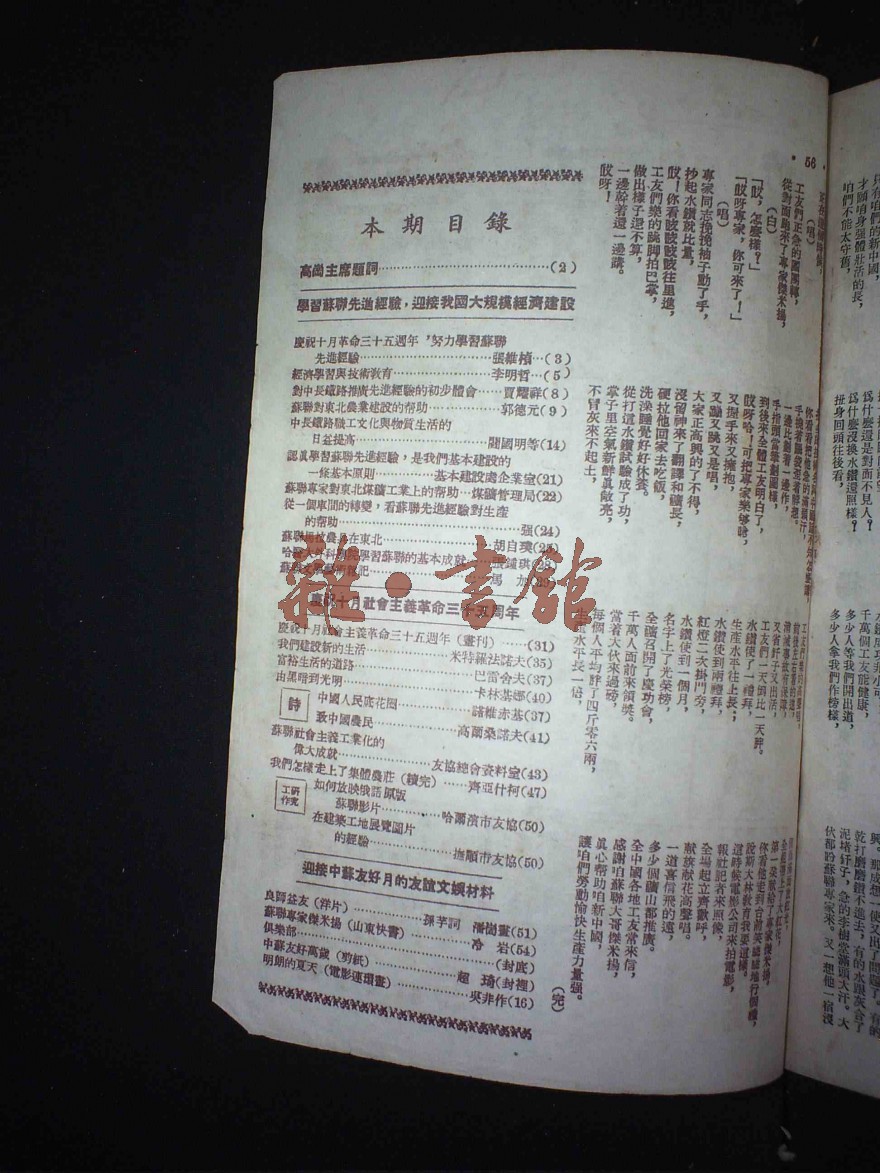 本期目錄
高崗主席題詞……(2)
學習蘇聯先進經驗，迎接我國大規模經濟建設
慶祝十月革命三十五週年，努力學習蘇聯
先進經驗……張維楨…(3)
經濟學習與技術教育……李明哲…(5)
對中長鐵路推廣先進經驗的初步體會……賈耀祥(8)
蘇聯對東北農業建設的幫助……郭德元(9)
中長鐵路職工文化與物質生活的
日益提高……關國明等(14)
認眞學習蘇聯先進經驗，是我們基本建設的
一條基本原則……基本建設處企業室(21)
蘇聯專家對東北煤礦工業上的幫助…煤礦管理局(22)
從一個車間的轉變，看蘇聯先進經驗對生產
的幫助……强(24)
在東北……胡自璞
學習蘇聯的基本成就
雜·書館
慶祝十月社會主義革命三十五周年
慶祝十月社會主義革命三十五週年（畫刊）……(31)
我們建設新的生活……米特羅法諾夫(35)
富裕生活的道路……巴雷舍夫(37)
由黑暗到光明……卡林基娜(40)
詩
中國人民底花園……諾維赤基(37)
致中國農民……高爾桑諾夫(41)
蘇聯社會主義工業化的
偉大成就……友協總會資料室(43)
我們怎樣走上了集體農莊（續完）……齊亞什柯(47)
工作研究
如何放映俄語原版
蘇聯影片……哈爾濱市友協(50)
在建築工地展覽圖片
的經驗……撫順市友協(50)
迎接中蘇友好月的友誼文娛材料
良師益友（洋片）……孫芋詞 潘樹畫(51)
蘇聯專家傑米揚（山東快書）……冷岩(54)
俱樂部……(封底)
中蘇友好萬歲（剪紙）……趙琦(封裡)
明朗的夏天（電影連環畫）……吳非作(16)
·56·
（唱）
工友們正急的團團轉，
從對面跑來了專家傑米揚，
（白）
「哎，怎麼樣？」
「哎呀專家，你可來了！」
（唱）
專家同志挽挽袖子動了手，
抄起水鑽就比量，
哎！你看吱吱吱吱往里進，
工友們樂的跳脚拍巴掌，
做出樣子還不算，
一邊幹着還一邊講。
哎呀！
一邊比劃着一邊作，
手指頭當筆劃圖樣，
到後來全體工友明白了，
哎呀哈！可把專家樂够嗆，
又握手來又擁抱，
又蹦又跳又是唱，
大家正高興的了不得，
沒留神來了翻譯和礦長，
硬拉他回家去吃飯，
洗澡睡覺好好休養。
從打這水鑽試驗成了功，
掌子里空氣新鮮眞敞亮，
不冒灰來不起土，
又省釺子又出活，
工友們一天頂比一天胖。
水鑽使了一禮拜，
生產水平往上長；
水鑽使到兩禮拜，
紅燈二次掛門旁，
水鑽使到一個月，
名字上了光榮榜，
全礦召開了慶功會，
千萬人面前來領獎。
當着大伙來過磅，
每個人平均胖了四斤零六兩，
生產水平長一倍，
第一朵獻給了專家傑米揚。
說斯大林教育我要這樣。
這時候電影公司來拍電影，
報社記者來照像，
全場起立齊歡呼，
獻旗獻花高聲唱。
一道喜信飛的遠，
多少個礦山都推廣。
全中國各地工友常來信，
感謝咱蘇聯大哥傑米揚，
眞心幫助咱新中國，
讓咱們勞動愉快生產力量强。
（完）
只有咱們的新中國，
才願咱身强體壯活的長，
咱們不能太守舊，
爲什麼還是對面不見人？
爲什麼沒換水鑽還照樣？
扭身回頭往後看，
千萬個工友能健康，
多少人等我們開出道，
多少人拿我們作榜樣，